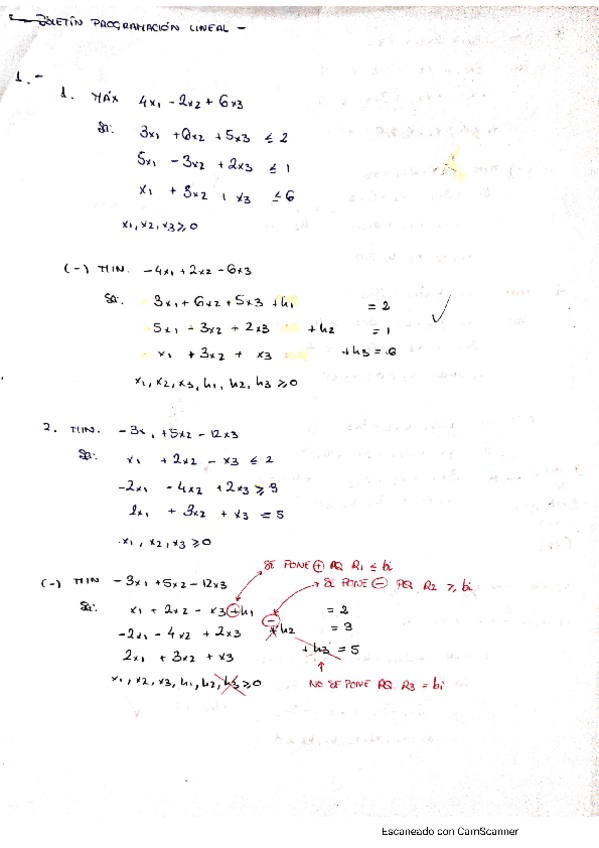 BOLETÍN PROGRAMACIÓN LINEAL -
1.-
1. MÁX 4x1 - 2x2 + 6x3
SA: 3x1 + 6x2 + 5x3 ≤ 2
5x1 - 3x2 + 2x3 ≤ 1
x1 + 3x2 + x3 ≤ 6
x1, x2, x3 ≥ 0
(-) MIN. -4x1 + 2x2 - 6x3
SA: 3x1 + 6x2 + 5x3 + h1 = 2
5x1 - 3x2 + 2x3 + h2 = 1
x1 + 3x2 + x3 + h3 = 6
x1, x2, x3, h1, h2, h3 ≥ 0
2. MIN. -3x1 + 5x2 - 12x3
SA: x1 + 2x2 - x3 ≤ 2
-2x1 - 4x2 + 2x3 ≥ 3
2x1 + 3x2 + x3 = 5
x1, x2, x3 ≥ 0
SE PONE + PQ R1 ≤ bi
(-) MIN -3x1 + 5x2 - 12x3 SE PONE - PQ R2 ≥ bi
SA: x1 + 2x2 - x3 + h1 = 2
-2x1 - 4x2 + 2x3 - + h2 = 3
2x1 + 3x2 + x3 + h3 = 5
x1, x2, x3, h1, h2, h3 ≥ 0 NO SE PONE PQ R3 = bi
Escaneado con CamScanner